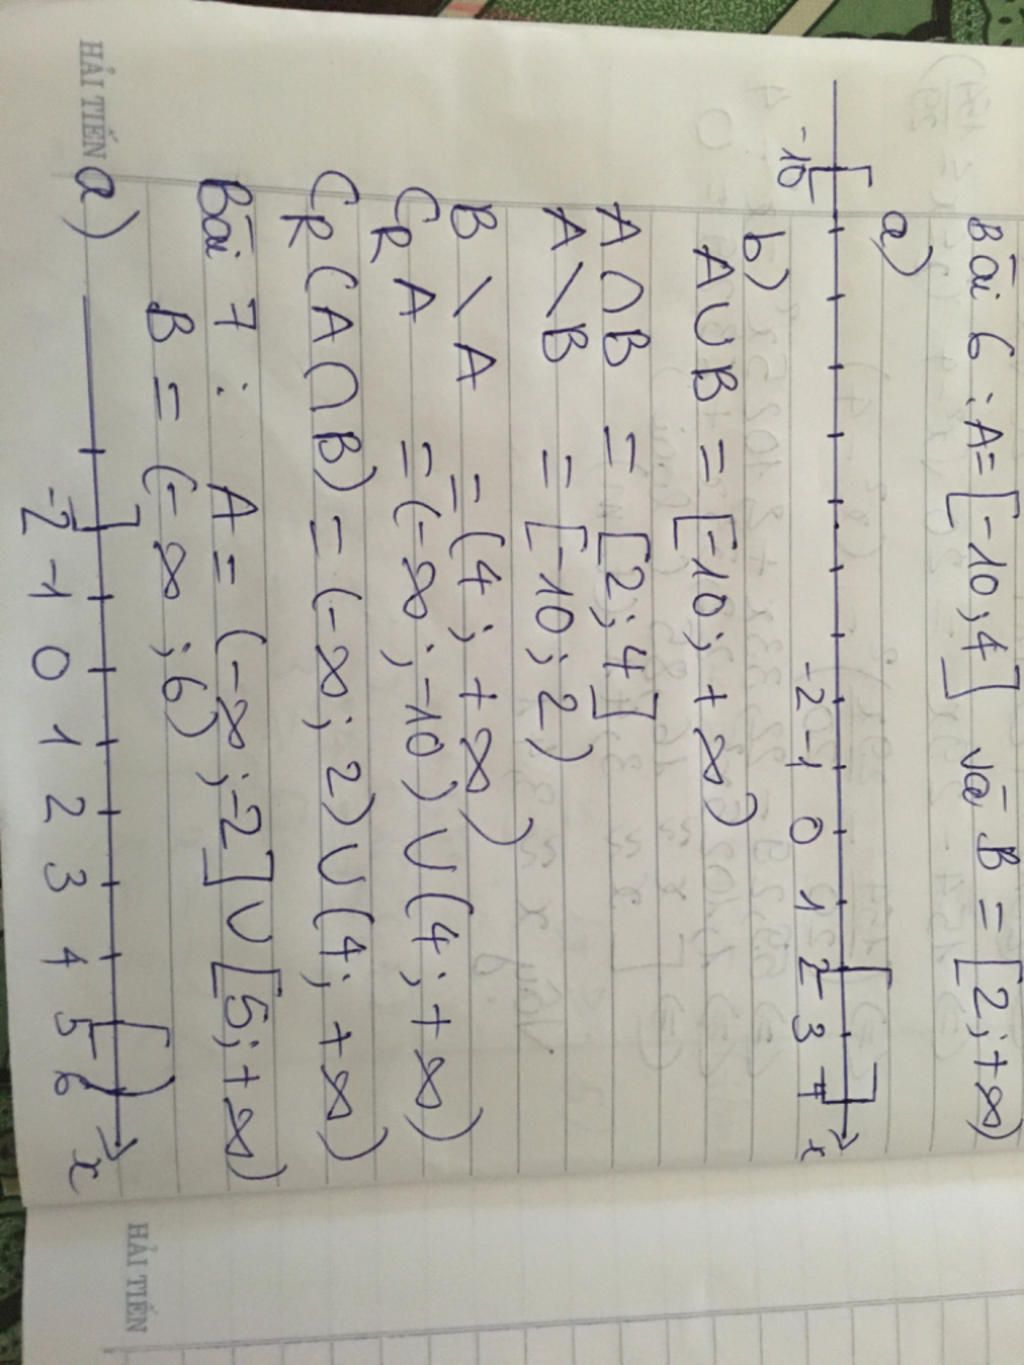 Bài 6 : A = [-10; 4] và B = [2; +∞)
a)
-10 -2 -1 0 1 2 3 4 x
b)
A∪B = [-10; +∞)
A∩B = [2; 4]
A \ B = [-10; 2)
B \ A = (4; +∞)
CR A = (-∞; -10) ∪ (4; +∞)
CR (A∩B) = (-∞; 2) ∪ (4; +∞)
Bài 7 : A = (-∞; -2] ∪ [5; +∞)
B = (-∞; 6)
a)
-2 -1 0 1 2 3 4 5 6 x
HẢI TIẾN
HẢI TIẾN